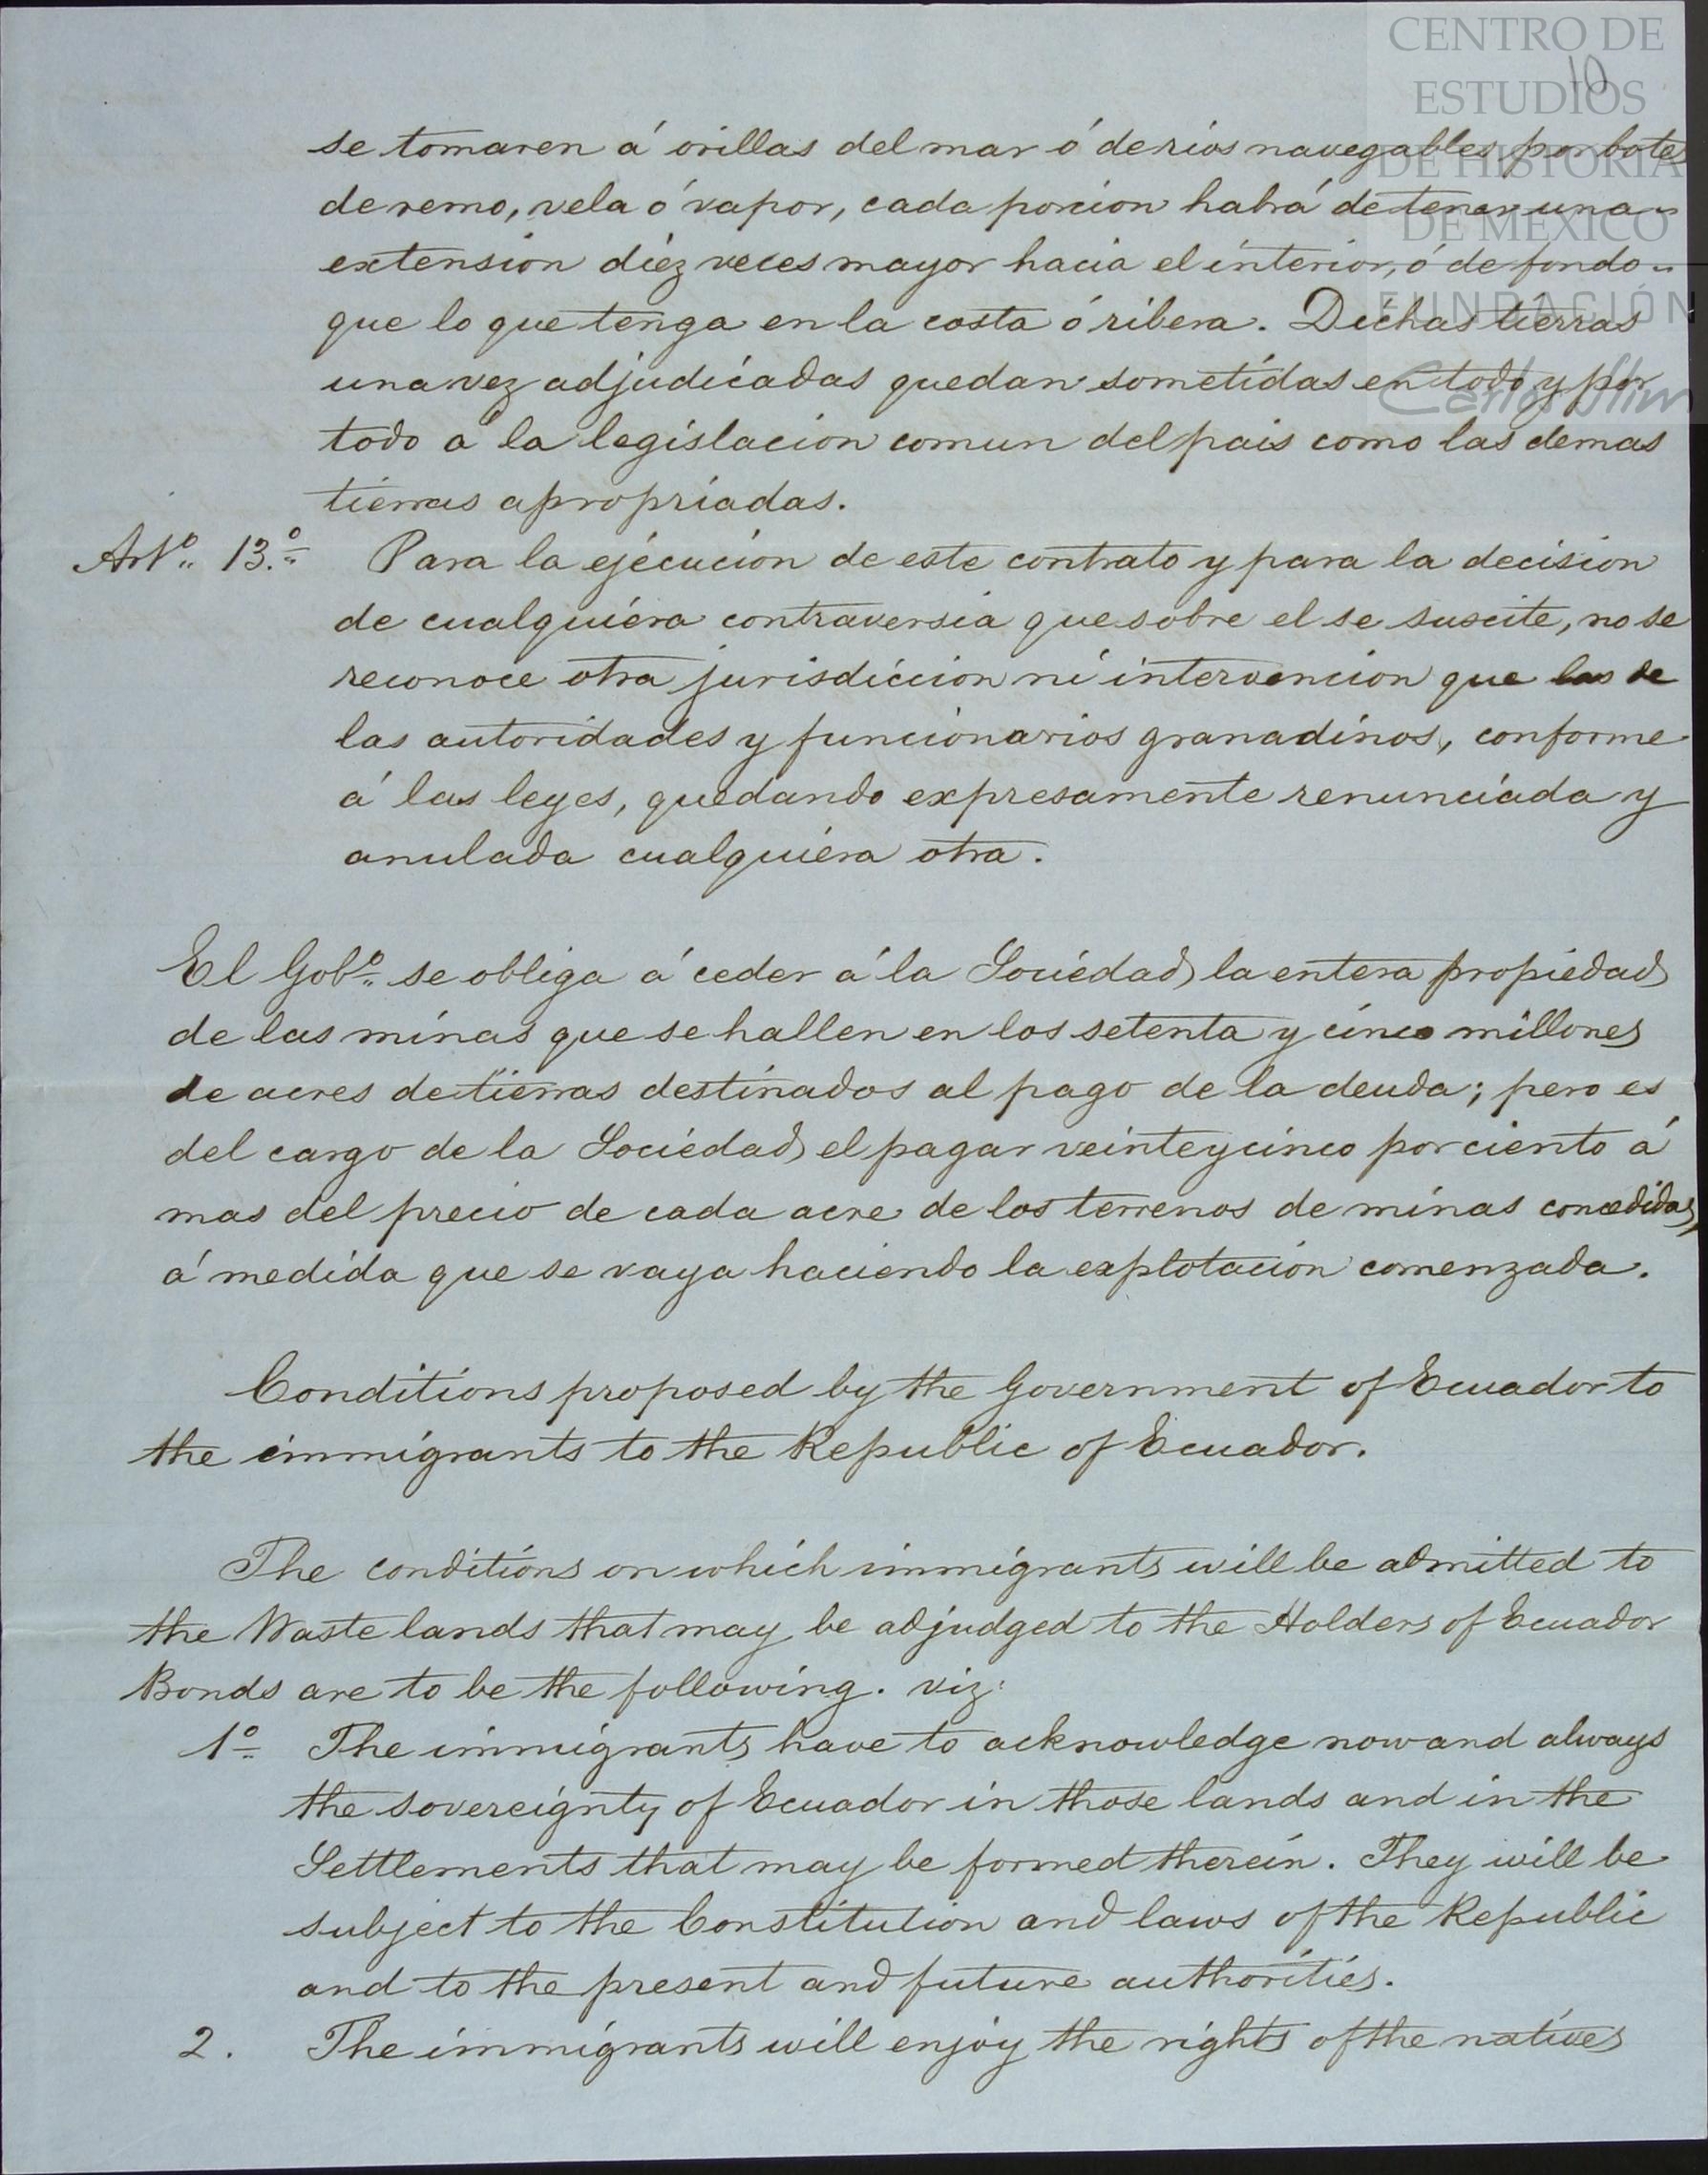 CENTRO DE
ESTUDIOS
DE HISTORIA
DE MEXICO
FUNDACIÓN
Carlos Slim
10
se tomaren á orillas del mar ó de rios navegables por botes
de remo, vela ó vapor, cada porcion habrá de tener una
extension diez veces mayor hacia el interior, ó de fondo
que lo que tenga en la costa ó ribera. Dichas tierras
una vez adjudicadas quedan sometidas en todo y por
todo a la legislacion comun del pais como las demas
tierras apropriadas.
Arto. 13.o Para la ejecucion de este contrato y para la decision
de cualquiera contraversia que sobre el se suscite, no se
reconoce otra jurisdiccion ni intervencion que las de
las autoridades y funcionarios granadinos, conforme
á las leyes, quedando expresamente renunciada y
anulada cualquiera otra.
El Gobo. se obliga á ceder á la Sociedad la entera propiedad
de las minas que se hallen en los setenta y cinco millones
de acres de tierras destinados al pago de la deuda; pero es
del cargo de la Sociedad el pagar veinteycinco por ciento á
mas del precio de cada acre de los terrenos de minas concedidas,
á medida que se vaya haciendo la explotacion comenzada.
Conditions proposed by the Government of Ecuador to
the immigrants to the Republic of Ecuador.
The conditions on which immigrants will be admitted to
the Waste lands that may be adjudged to the Holders of Ecuador
Bonds are to be the following. viz:
1o The immigrants have to acknowledge now and always
the sovereignty of Ecuador in those lands and in the
Settlements that may be formed therein. They will be
subject to the Constitution and laws of the Republic
and to the present and future authorities.
2. The immigrants will enjoy the rights of the natives